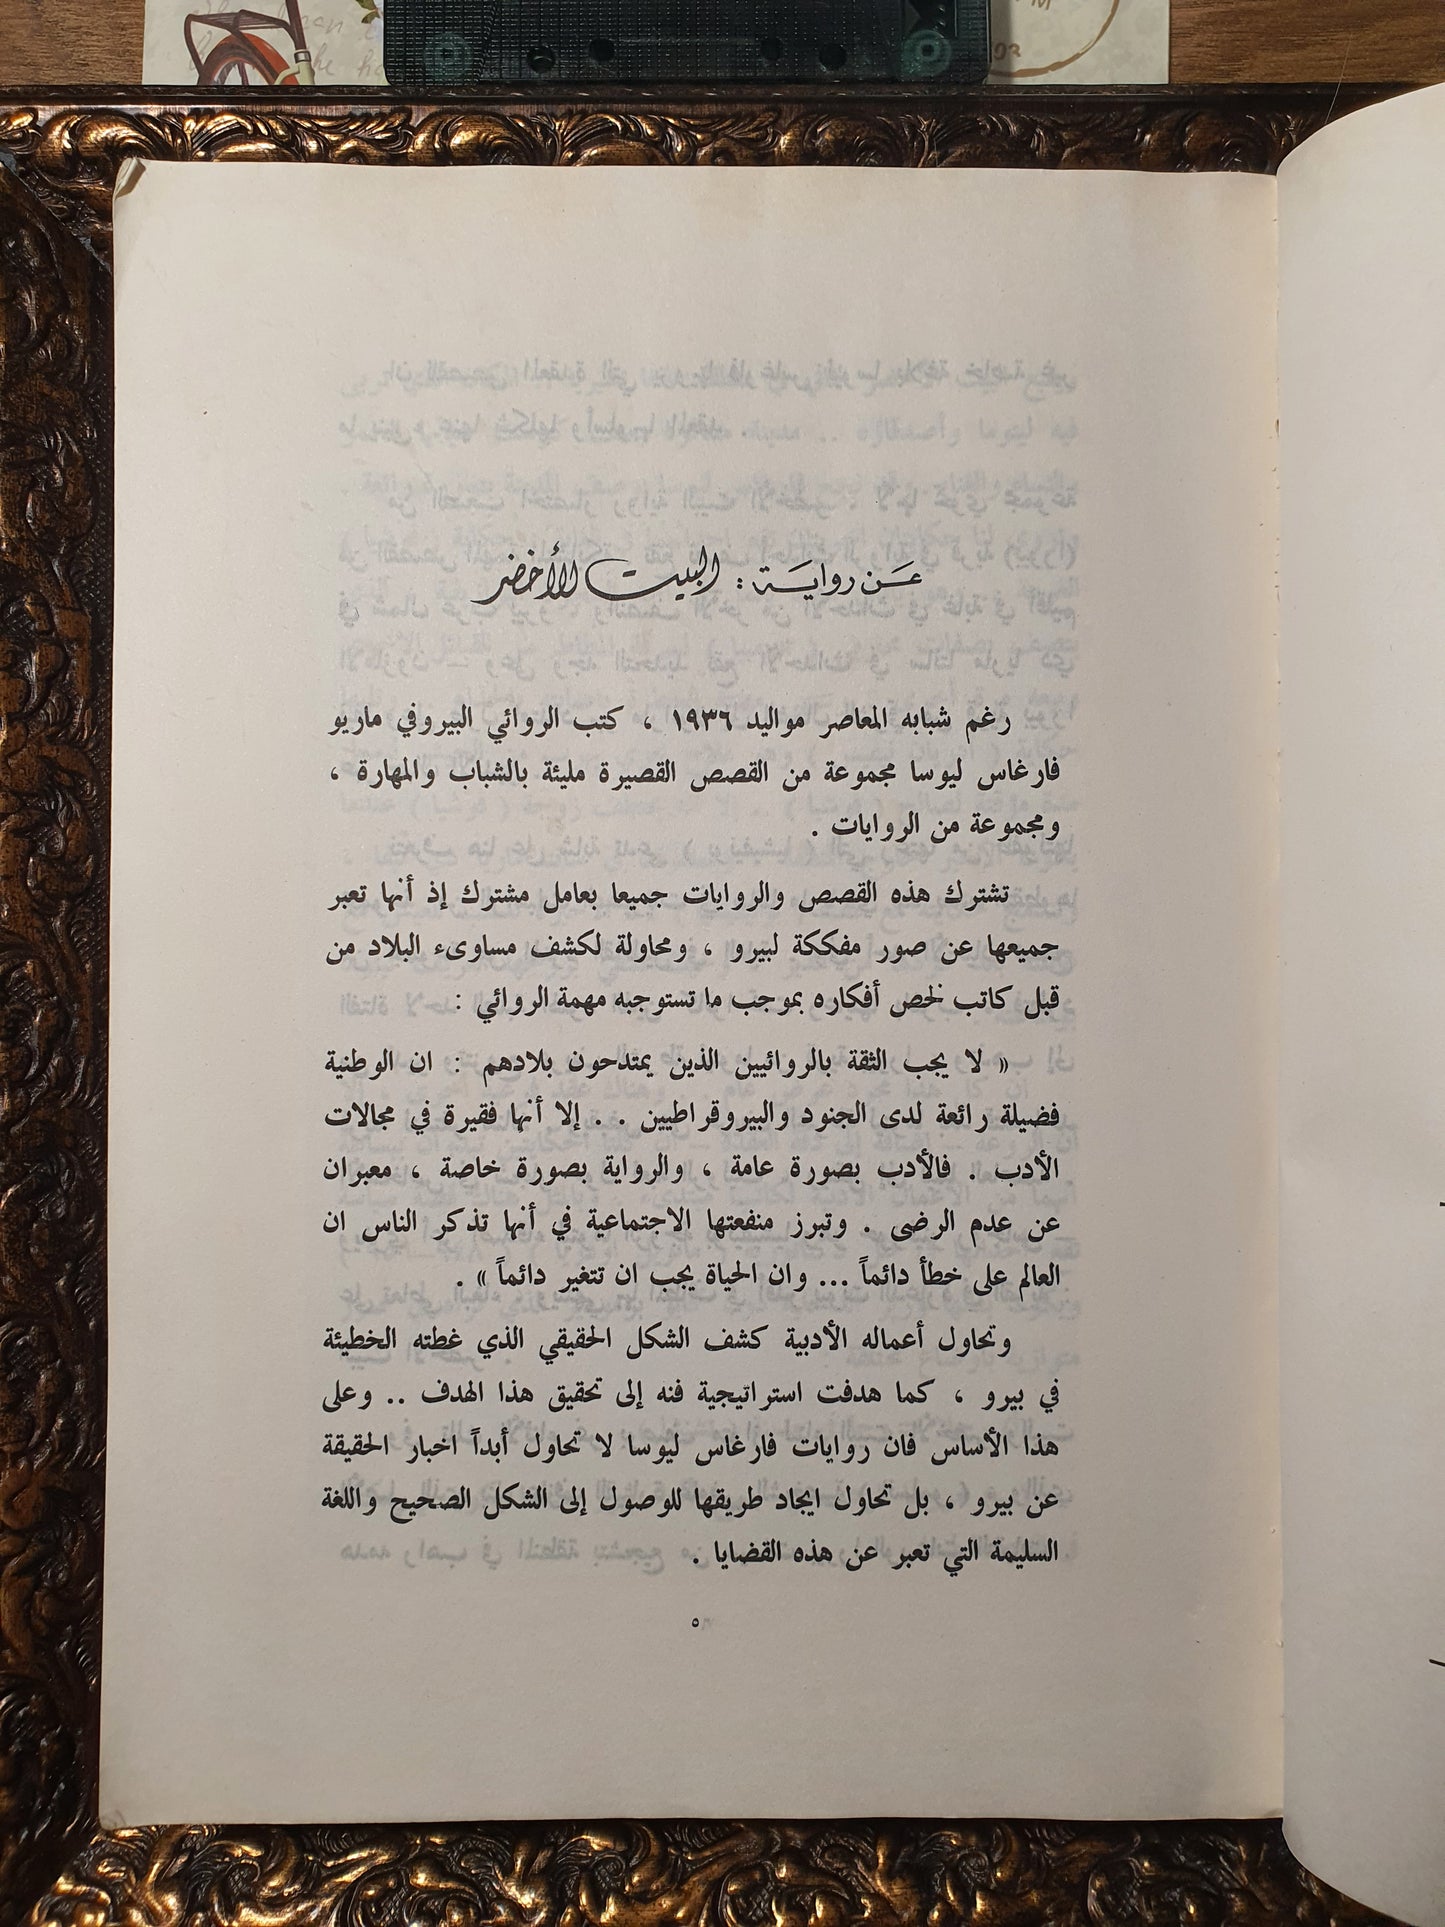 عن رواية : البيت الأخضر
رغم شبابه المعاصر مواليد ١٩٣٦ ، كتب الروائي البيروفي ماريو
فارغاس ليوسا مجموعة من القصص القصيرة مليئة بالشباب والمهارة ،
ومجموعة من الروايات .
تشترك هذه القصص والروايات جميعا بعامل مشترك إذ أنها تعبر
جميعها عن صور مفككة لبيرو ، ومحاولة لكشف مساوىء البلاد من
قبل كاتب لخص أفكاره بموجب ما تستوجبه مهمة الروائي :
« لا يجب الثقة بالروائيين الذين يمتدحون بلادهم : ان الوطنية
فضيلة رائعة لدى الجنود والبيروقراطيين . . إلا أنها فقيرة في مجالات
الأدب . فالأدب بصورة عامة ، والرواية بصورة خاصة ، معبران
عن عدم الرضى . وتبرز منفعتها الاجتماعية في أنها تذكر الناس ان
العالم على خطأ دائماً ... وان الحياة يجب ان تتغير دائماً » .
وتحاول أعماله الأدبية كشف الشكل الحقيقي الذي غطته الخطيئة
في بيرو ، كما هدفت استراتيجية فنه إلى تحقيق هذا الهدف .. وعلى
هذا الأساس فان روايات فارغاس ليوسا لا تحاول أبداً اخبار الحقيقة
عن بيرو ، بل تحاول ايجاد طريقها للوصول إلى الشكل الصحيح واللغة
السليمة التي تعبر عن هذه القضايا .
٥